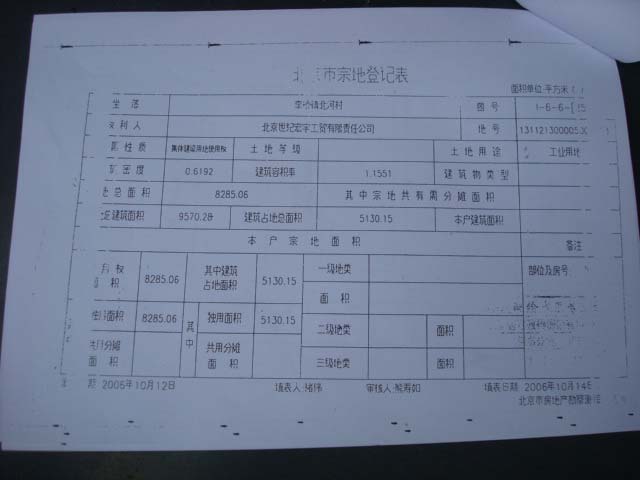 北京市宗地登记表
面积单位:平方米
坐落 李桥镇北河村 图号 1-6-6-
权利人 北京世纪宏宇工贸有限责任公司 地号 131121300005
属性质 集体建设用地使用权 土地等级 土地用途 工业用地
密度 0.6192 建筑容积率 1.1551 建筑物类型
总面积 8285.06 其中宗地共有需分摊面积
建筑面积 9570.28 建筑占地总面积 5130.15 本户建筑面积
本户宗地面积 备注
权面积 8285.06 其中建筑占地面积 5130.15 一级地类 部位及房号
面积
面积 8285.06 其中 独用面积 5130.15 二级地类 面积
共用分摊面积 共用分摊面积 三级地类 面积
期 2006年10月12日 填表人 审核人 填表日期 2006年10月14
北京市房地产勘察测